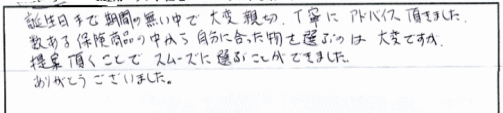 誕生日まで期間の無い中で大変親切、丁寧にアドバイス頂きました。
数ある保険商品の中から自分に合った物を選ぶのは大変ですが、
提案頂くことでスムーズに選ぶことができました。
ありがとうございました。